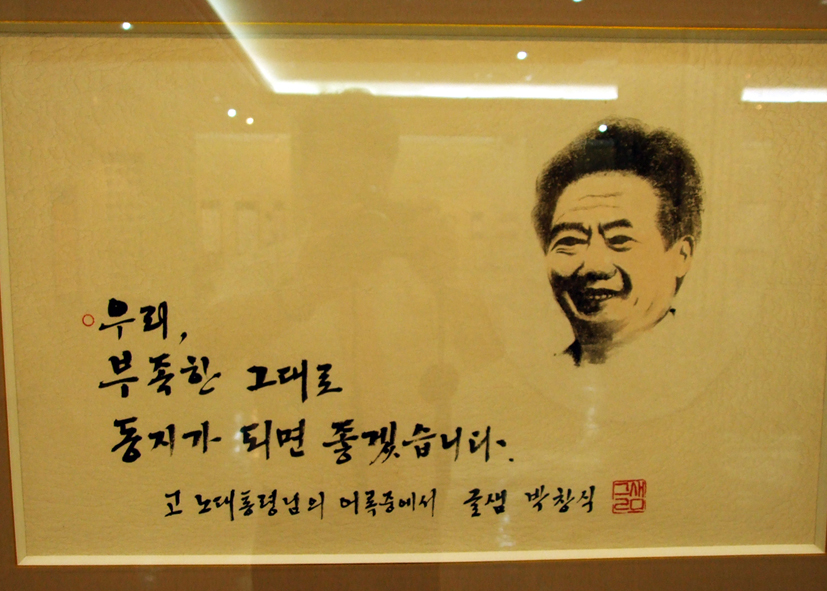 우리,
부족한 그대로
동지가 되면 좋겠습니다.
고 노대통령님의 어록중에서 글샘 박창식
글샘